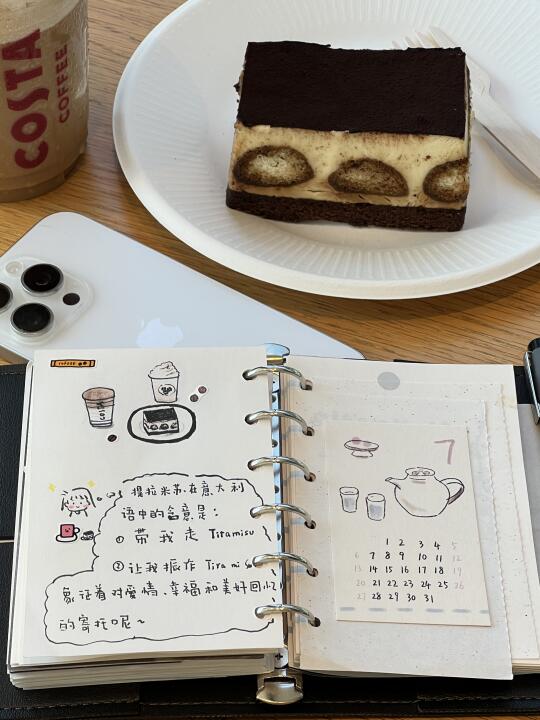 COSTA
COFFEE
COFFEE
提拉米苏.在意大利
语中的含意是:
① 带 我 走 Tiramisu
② 让我振作 Tiramisu
象征着对爱情、幸福和美好回忆
的寄托呢~
7
1 2 3 4 5
6 7 8 9 10 11 12
13 14 15 16 17 18 19
20 21 22 23 24 25 26
27 28 29 30 31